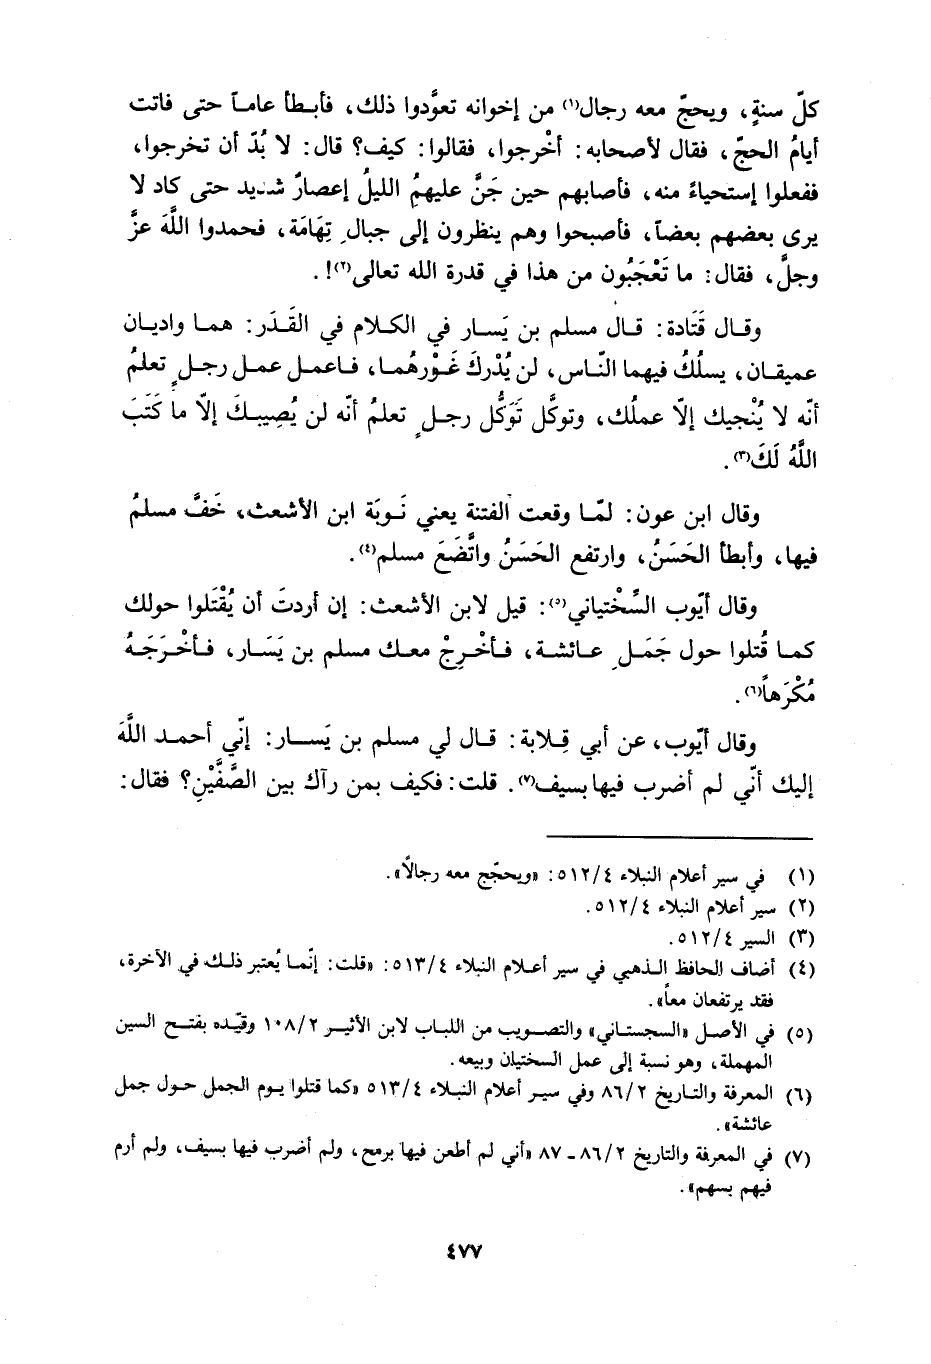 كلّ سنةٍ، ويحجّ معه رجال(١) من إخوانه تعوَّدوا ذلك، فأبطأ عاماً حتى فاتت
أيامُ الحجّ، فقال لأصحابه: أخْرجوا، فقالوا: كيف؟ قال: لا بُدّ أن تخرجوا،
ففعلوا إستحياءً منه، فأصابهم حين جَنَّ عليهمُ الليلُ إعصارٌ شديد حتى كاد لا
يرى بعضهم بعضاً، فأصبحوا وهم ينظرون إلى جبالِ تِهَامَة، فحمدوا اللَّهَ عزَّ
وجلَّ، فقال: ما تَعْجَبُون من هذا في قدرة الله تعالى(٢)!.
وقال قَتَادة: قال مسلم بن يَسار في الكلام في القَدَر: هما واديان
عميقان، يسلُكُ فيهما النّاس، لن يُدْركَ غَوْرهُما، فاعمل عمل رجلٍ تعلمُ
أنّه لا يُنْجيك إلاّ عملُك، وتوكَّل تَوَكُّل رجلٍ تعلمُ أنّه لن يُصِيبكَ إلاّ ما كَتَبَ
اللَّهُ لَكَ(٣).
وقال ابن عون: لمّا وقعت الفتنة يعني نَوبَة ابن الأشعث، خَفَّ مسلمُ
فيها، وأبطأ الحَسَنُ، وارتفع الحَسَنُ واتَّضَعَ مسلم(٤).
وقال أيّوب السِّخْتياني(٥): قيل لابن الأشعث: إن أردتَ أن يُقْتَلوا حولك
كما قُتلوا حول جَمَلِ عائشة، فأخْرِجْ معك مسلم بن يَسَار، فأخْرَجَهُ
مُكْرَهاً(٦).
وقال أيّوب، عن أبي قِلابة: قال لي مسلم بن يَسار: إنّي أحمد اللَّهَ
إليك أنّي لم أضرب فيها بسيف(٧). قلت: فكيف بمن رآك بين الصَّفَّيْنِ؟ فقال:
(١) في سير أعلام النبلاء ٤/٥١٢: «ويحجّج معه رجالاً».
(٢) سير أعلام النبلاء ٤/٥١٢.
(٣) السير ٤/٥١٢.
(٤) أضاف الحافظ الذهبي في سير أعلام النبلاء ٤/٥١٣: «قلت: إنّما يُعتبر ذلك في الآخرة،
فقد يرتفعان معاً».
(٥) في الأصل «السجستاني» والتصويب من اللباب لابن الأثير ١٠٨/٢ وقيّده بفتح السين
المهملة، وهو نسبة إلى عمل السختيان وبيعه.
(٦) المعرفة والتاريخ ٨٦/٢ وفي سير أعلام النبلاء ٥١٣/٤ «كما قتلوا يوم الجمل حول جمل
عائشة».
(٧) في المعرفة والتاريخ ٨٦/٢ ـ ٨٧ «أني لم أطعن فيها برمح، ولم أضرب فيها بسيف، ولم أرم
فيهم بسهم».
٤٧٧